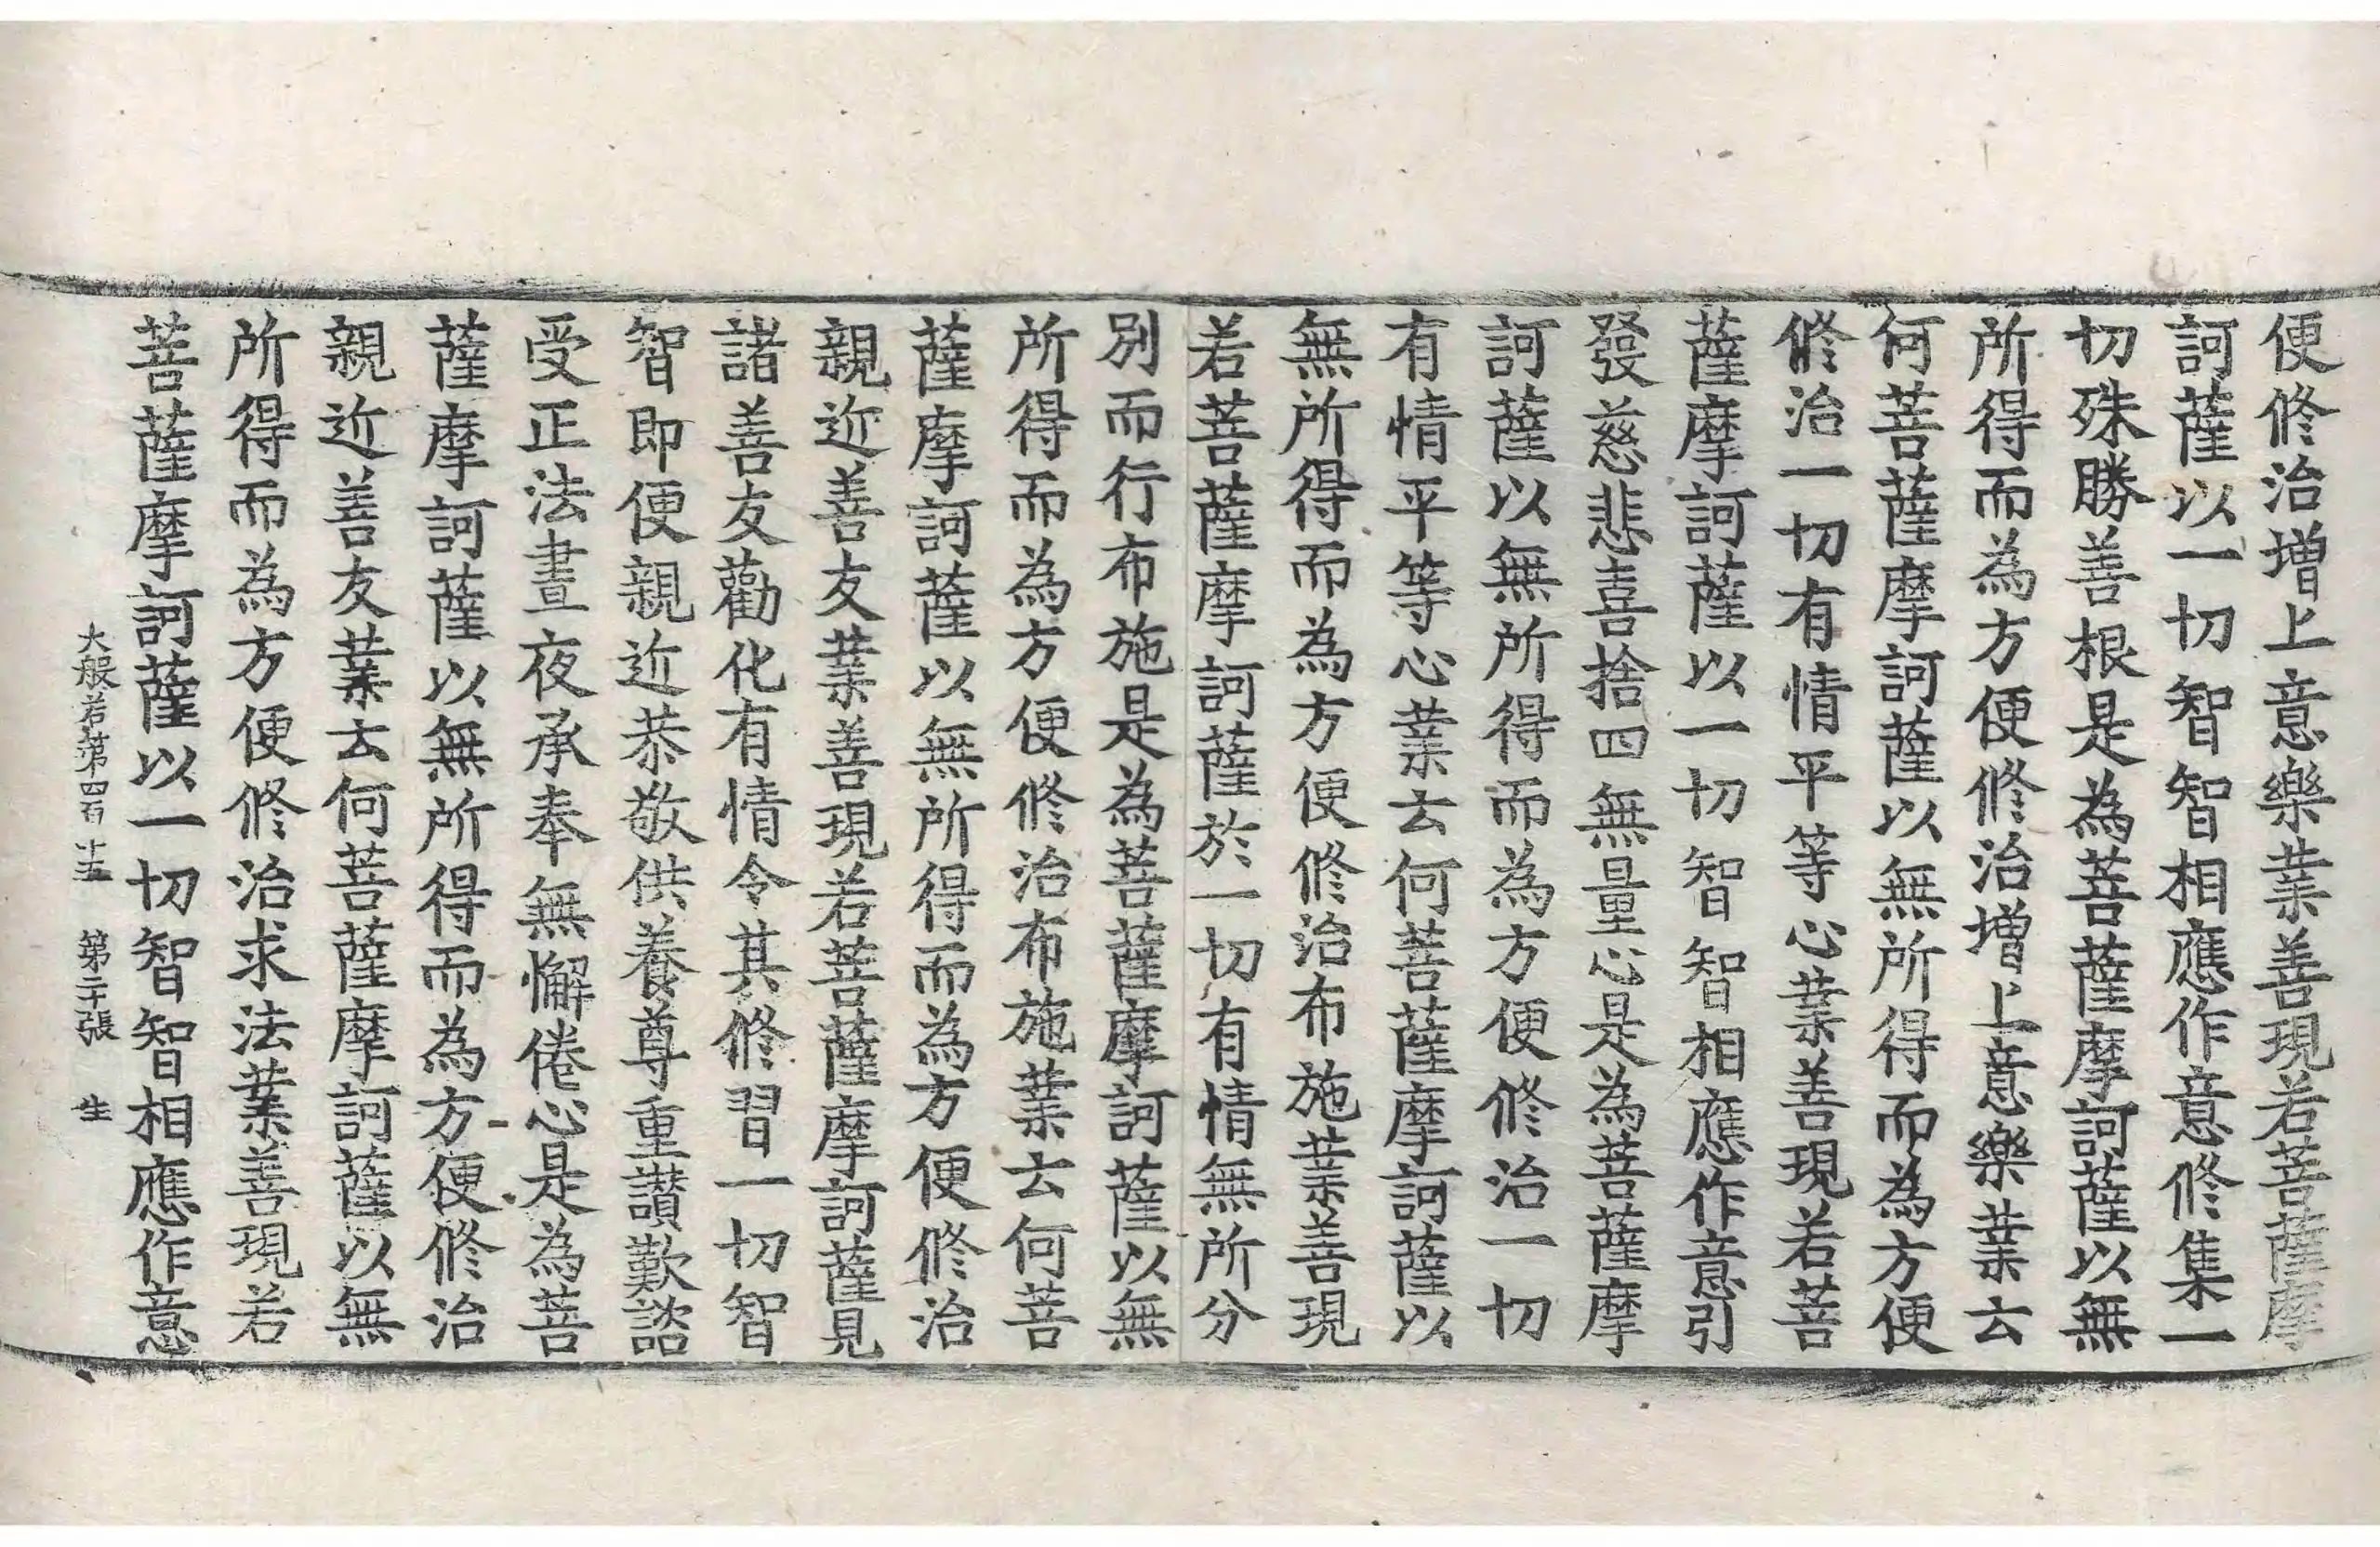 便修治增上意樂業善現若菩薩摩
訶薩以一切智智相應作意修集一
切殊勝善根是為菩薩摩訶薩以無
所得而為方便修治增上意樂業云
何菩薩摩訶薩以無所得而為方便
修治一切有情平等心業善現若菩
薩摩訶薩以一切智智相應作意引
發慈悲喜捨四無量心是為菩薩摩
訶薩以無所得而為方便修治一切
有情平等心業云何菩薩摩訶薩以
無所得而為方便修治布施業善現
若菩薩摩訶薩於一切有情無所分
別而行布施是為菩薩摩訶薩以無
所得而為方便修治布施業云何菩
薩摩訶薩以無所得而為方便修治
親近善友業善現若菩薩摩訶薩見
諸善友勸化有情令其修習一切智
智即便親近恭敬供養尊重讚歎諮
受正法晝夜承奉無懈倦心是為菩
薩摩訶薩以無所得而為方便修治
親近善友業云何菩薩摩訶薩以無
所得而為方便修治求法業善現若
菩薩摩訶薩以一切智智相應作意
大般若第四百十五 第二十張 生